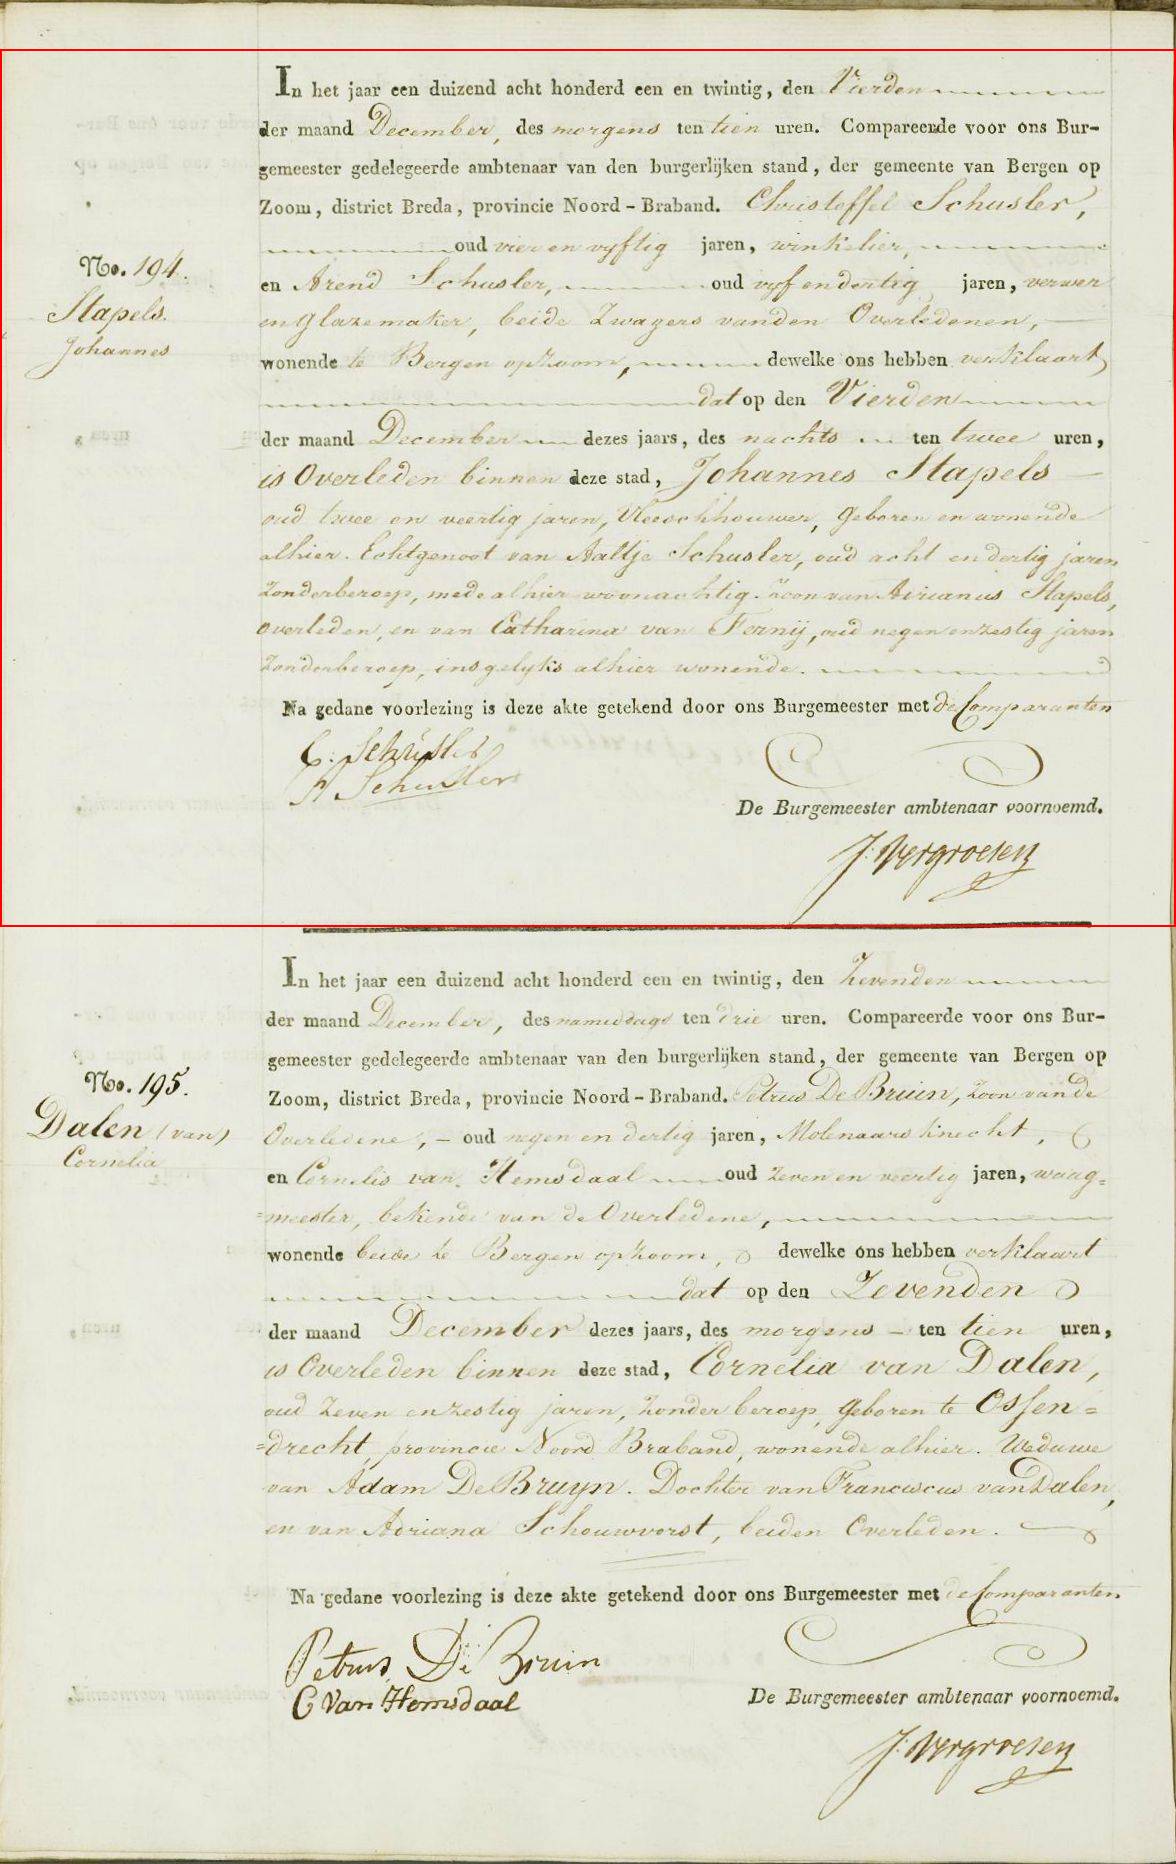 In het jaar een duizend acht honderd een en twintig, den Vierden
der maand December, des morgens ten tien uren. Compareerde voor ons Bur-
gemeester gedelegeerde ambtenaar van den burgerlijken stand, der gemeente van Bergen op
Zoom, district Breda, provincie Noord-Braband. Christoffel Schusler,
oud vier en vyftig jaren, winkelier,
No. 194.
en Arend Schusler, oud vyf en dertig jaren, verwer
Stapels.
en glazemaker, beide Zwagers van den Overledenen,
Johannes
wonende te Bergen op Zoom, dewelke ons hebben verklaart
dat op den Vierden
der maand December dezes jaars, des nachts ten twee uren,
is Overleden binnen deze stad, Johannes Stapels
oud twee en veertig jaren, Vleeschhouwer, Geboren en wonende
alhier. Echtgenoot van Aaltje Schusler, oud acht en dertig jaren
Zonder beroep, mede alhier woonachtig. Zoon van Adrianus Stapels,
overleden, en van Catharina van Ternij, oud negen en zestig jaren
Zonder beroep, insgelyks alhier wonende.
Na gedane voorlezing is deze akte getekend door ons Burgemeester met de Comparanten
C. Schusler
A Schusler
De Burgemeester ambtenaar voornoemd.
J. Vergroesen
In het jaar een duizend acht honderd een en twintig, den Zevenden
der maand December, des namiddags ten drie uren. Compareerde voor ons Bur-
gemeester gedelegeerde ambtenaar van den burgerlijken stand, der gemeente van Bergen op
No. 195.
Zoom, district Breda, provincie Noord-Braband. Petrus De Bruin, Zoon van de
Dalen (van)
Overledene, - oud negen en dertig jaren, Molenaars knecht,
Cornelia
en Cornelis van Hemsdaal oud Zeven en veertig jaren, waag=
=meester, bekende van de Overledene,
wonende beide te Bergen op Zoom, dewelke ons hebben verklaart
dat op den Zevenden
der maand December dezes jaars, des morgens - ten tien uren,
is Overleden binnen deze stad, Cornelia van Dalen,
oud Zeven en zestig jaren, Zonder beroep, Geboren te Ossen=
=drecht, provincie Noord Braband, wonende alhier. Weduwe
van Adam De Bruyn. Dochter van Franciscus van Dalen,
en van Adriana Schouwvorst, beiden Overleden.
Na gedane voorlezing is deze akte getekend door ons Burgemeester met de Comparanten.
Petrus De Bruin
C Van Hemsdaal
De Burgemeester ambtenaar voornoemd.
J. Vergroesen